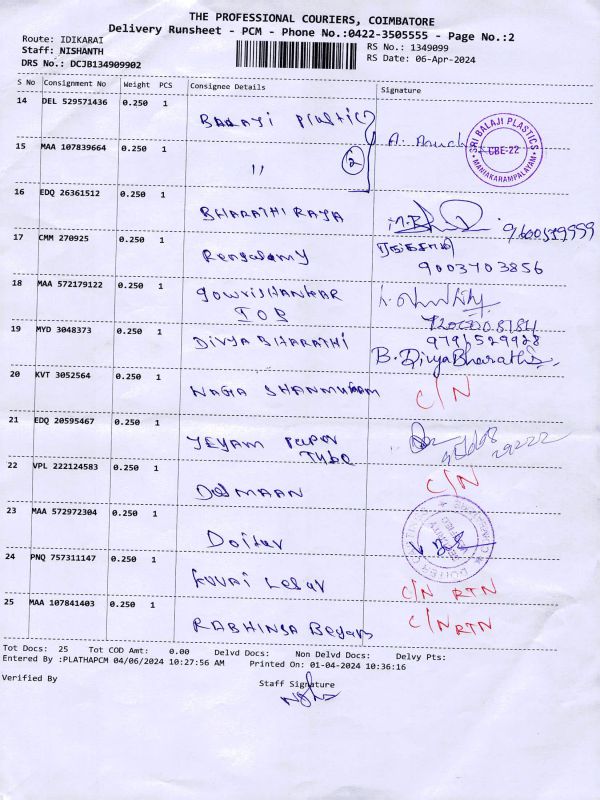 THE PROFESSIONAL COURIERS, COIMBATORE
Delivery Runsheet - PCM - Phone No.:0422-3505555 - Page No.:2
Route: IDIKARAI
Staff: NISHANTH
RS No.: 1349099
DRS No.: DCJB134909902
RS Date: 06-Apr-2024
S No Consignment No Weight PCS Consignee Details Signature
14 DEL 529571436 0.250 1
BALAJI Plastics
SRI BALAJI PLASTICS
CBE-22
MANIAKARAMPALAYAM
15 MAA 107839664 0.250 1
"
2
16 EDQ 26361512 0.250 1
BHARATHI RAJA
17 CMM 270925 0.250 1
9003703856
18 MAA 572179122 0.250 1
GOWRISHANKAR
19 MYD 3048373 0.250 1
DIVYA BHARATHI
9791529928
B. DivyaBharathi
20 KVT 3052564 0.250 1
NAGA SHANMUGAM C/N
21 EDQ 20595467 0.250 1
JEYAM Paper
Tube
22 VPL 222124583 0.250 1
C/N
23 MAA 572972304 0.250 1
24 PNQ 757311147 0.250 1
C/N RTN
25 MAA 107841403 0.250 1
C/N RTN
Tot Docs: 25 Tot COD Amt: 0.00 Delvd Docs: Non Delvd Docs: Delvy Pts:
Entered By :PLATHAPCM 04/06/2024 10:27:56 AM Printed On: 01-04-2024 10:36:16
Verified By Staff Signature